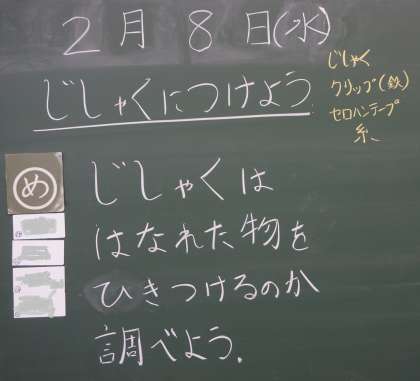 2月8日(水)
じしゃくにつけよう
じしゃく
クリップ(鉄)
セロハンテープ
糸
め
じしゃくは
はなれた物を
ひきつけるのか
調べよう.